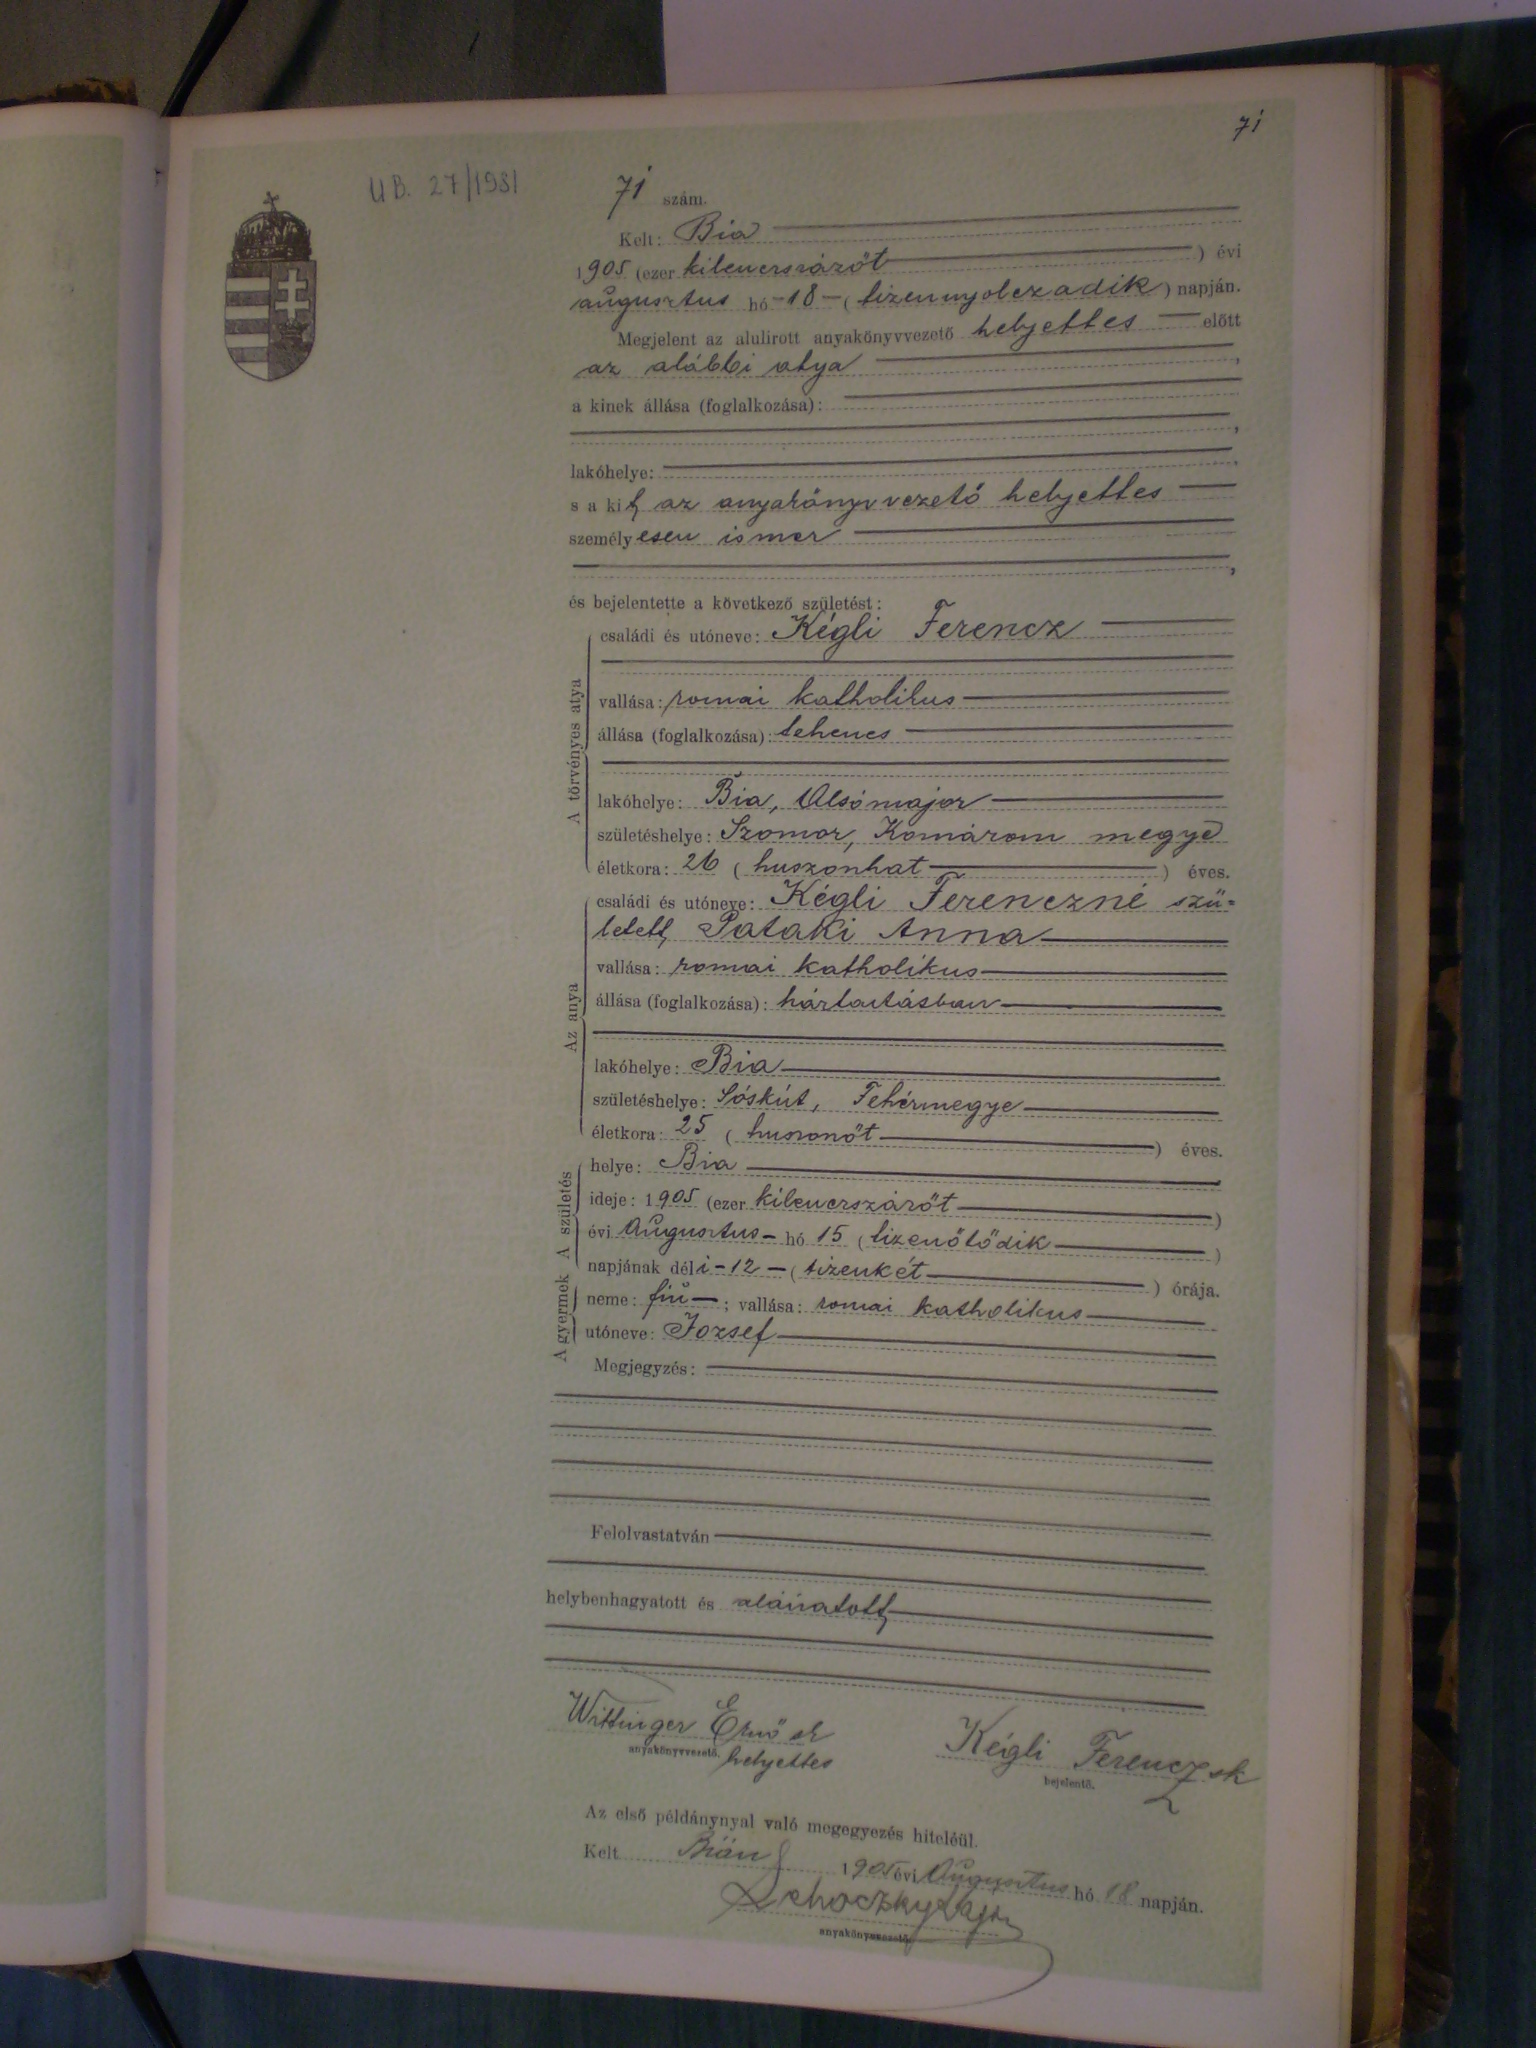 71
UB. 27/1981
71 szám.
Kelt: Bia
1905 (ezer kilenczszázöt) évi
augusztus hó 18 (tizennyolczadik) napján.
Megjelent az alulirott anyakönyvvezető helyettes előtt
az alábbi atya,
a kinek állása (foglalkozása):
lakóhelye:
s a kit az anyakönyvvezető helyettes
személyesen ismer
és bejelentette a következő születést:
A törvényes atya
családi és utóneve: Kégli Ferencz
vallása: romai katholikus
állása (foglalkozása): tehenes
lakóhelye: Bia, Alsómajor
születéshelye: Szomor, Komárom megye
életkora: 26 (huszonhat) éves.
Az anya
családi és utóneve: Kégli Ferenczné szü=
letett Pataki Anna
vallása: romai katholikus
állása (foglalkozása): háztartásban
lakóhelye: Bia
születéshelye: Sóskút, Fehérmegye
életkora: 25 (huszonöt) éves.
A születés
helye: Bia
ideje: 1905 (ezer kilenczszázöt)
évi Augusztus hó 15 (tizenötödik)
napjának déli 12 (tizenkét) órája.
A gyermek
neme: fiu; vallása: romai katholikus
utóneve: Jozsef
Megjegyzés:
Felolvastatván
helybenhagyatott és aláiratott
Wittinger Ernő sk
anyakönyvvezető. helyettes
Kégli Ferencz sk
bejelentő.
Az első példánynyal való megegyezés hiteléül.
Kelt Bián 1905 évi Augusztus hó 18 napján.
anyakönyvvezető.